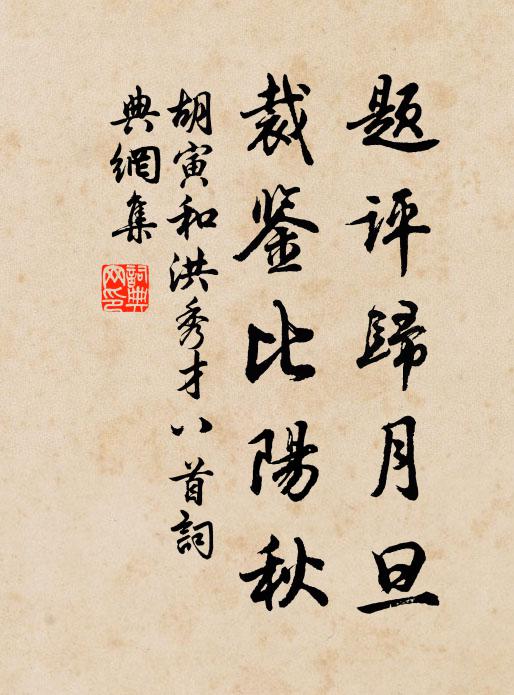 题评歸月旦
裁鉴比陽秋
胡寅和洪秀才八首詞
典網集
詞典网印